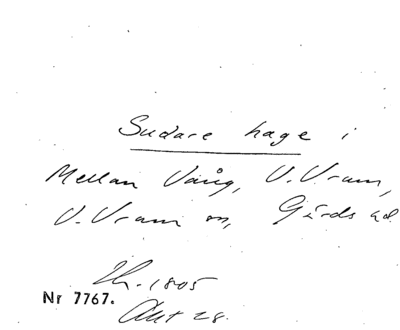 Sudare hage i
Mellan Vång, V. Vram,
V. Vram sn, Gärds hd
Th. 1805
Nr 7767.
Akt 28.